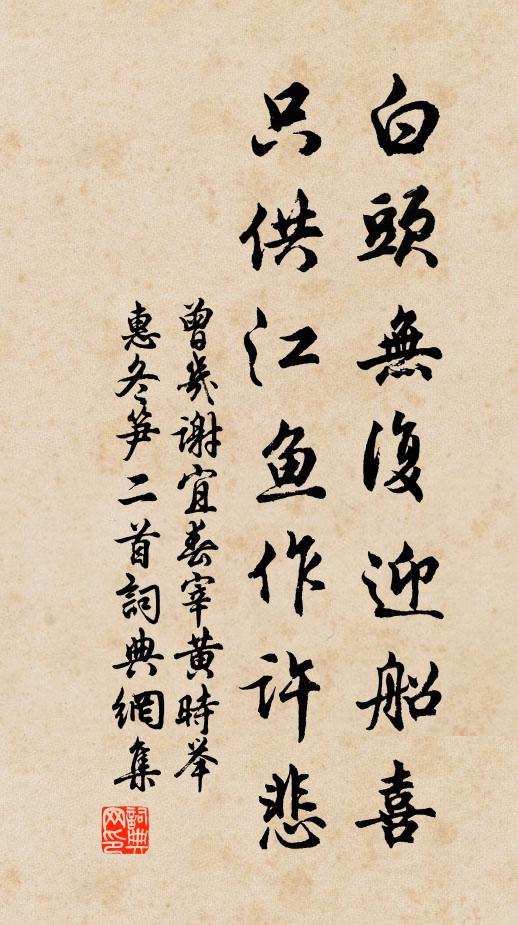 白頭無復迎船喜
只供江魚作許悲
曾幾謝宜春宰黄時举
惠冬笋二首詞典網集
詞典网印